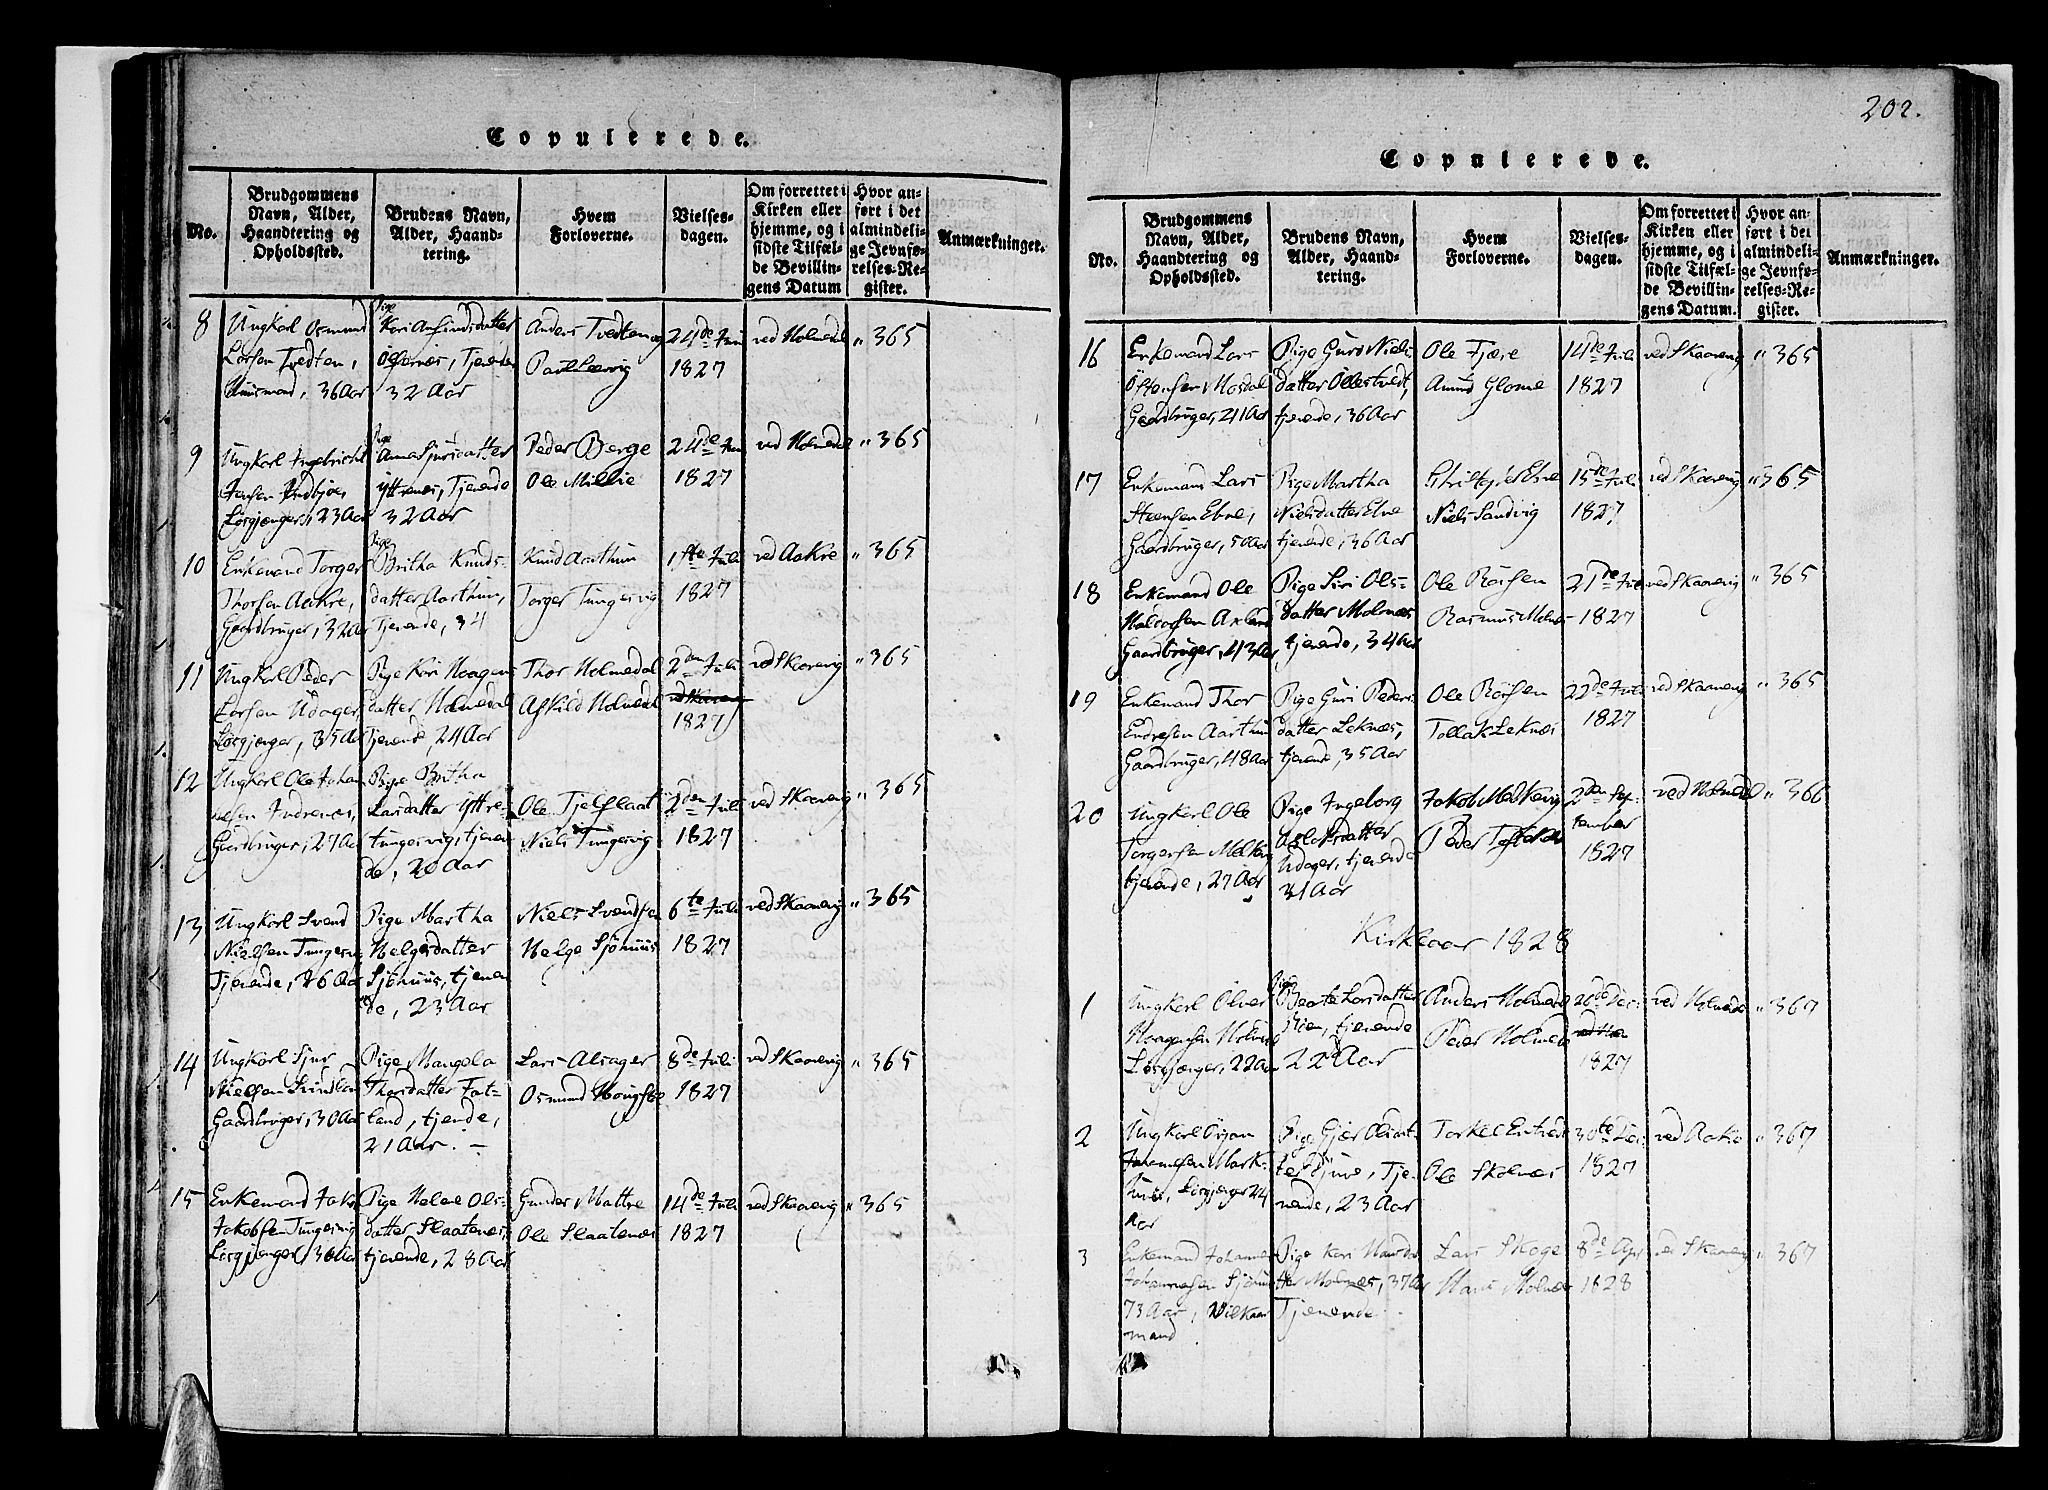 Copulerede.
No.
Brudgommens Navn, Alder, Haandtering og Opholdssted.
Brudens Navn, Alder, Haandtering.
Hvem Forloverne.
Vielsesdagen.
Om forrettet i Kirken eller hjemme, og i sidste Tilfælde Bevillingens Datum
Hvor anført i det almindelige Jevnførelses-Register.
Anmærkninger.
8
Ungkarl Osmund
Larsen Tvedten,
Huusmand, 36 Aar
Pige
Kari Anfindsdatter
Ølfernes, Tjenende
32 Aar
Anders Tvedten og
Poul Leervig
24de Juni
1827
ved Holmedal
" 365
9
Ungkarl Ingebricht
Jensen
Løsgjænger, 23 Aar
Pige
Anna Sjursdatter
Yttrenes, Tjenende
32 Aar
Peder Berge
Ole Millie
24de Juni
1827
ved Holmedal
" 365
10
Enkemand Torger
Thorsen Aakre,
Gaardbruger, 32 Aar
Pige
Britha Knuds-
datter Aarthun,
Tjenende, 34
Knud Aarthun
Torger Tungesvig
1ste Juli
1827
ved Aakre
" 365
11
Ungkarl Peder
Larsen Udager,
Løsgjænger, 35 Aar
Pige Kari Haagens
datter Holmedal
Tjenende, 24 Aar
Thor Holmedal
Askild Holmedal
2den Juli
1827
ved Skaanevig
" 365
12
Ungkarl Ole Johan
nesen Indrenes,
Gaardbruger, 27 Aar
Pige Britha
Larsdatter Yttre-
tungesvig, tjenen
de, 20 Aar
Ole Tjelflaat
Niels Tungesvig
2den Juli
1827
ved Skaanevig
" 365
13
Ungkarl Svend
Nielsen Tungesvig
Tjenende, 26 Aar
Pige Martha
Helgesdatter
Sjöhuus, tjenen
de, 23 Aar
Niels Svendsen
Helge Sjöhuus
6te Juli
1827
ved Skaanevig
" 365
14
Ungkarl Sjur
Nielsen Svindland
Gaardbruger, 30 Aar
Pige Mangela
Thorsdatter Fat-
land, tjende,
21 Aar. -
Lars Alsager
Osmund Hougste
8de Juli
1827
ved Skaanevig
" 365
15
Enkemand Jakob
Jakobsen Tungesvig
Løsgjænger, 30 Aar
Pige Helene Ols-
datter Slaatenes,
tjenende, 28 Aar
Gunder Mattre
Ole Slaatenes
14de Juli
1827
ved Skaanevig
" 365
202.
Copulerede.
No.
Brudgommens Navn, Alder, Haandtering og Opholdssted.
Brudens Navn, Alder, Haandtering.
Hvem Forloverne.
Vielsesdagen.
Om forrettet i Kirken eller hjemme, og i sidste Tilfælde Bevillingens Datum.
Hvor anført i det almindelige Jevnførelses-Register.
Anmærkninger.
16
Enkemand Lars
Östensen Mosdal
Gaardbruger, 41 Aar
Pige Guro Niels
datter Öllestvedt,
tjenende, 36 Aar
Ole Fjære
Amund Glome
14de Juli
1827
ved Skaanevig
" 365
17
Enkemand Lars
Steensen Ebne,
Gaardbruger, 50 Aar
Pige Martha
Nielsdatter Ebne
tjenende, 36 Aar
Christopher Ebne
Niels Sandvig
15de Juli
1827
ved Skaanevig
" 365
18
Enkemand Ole
Halvorsen Axland
Gaardbruger, 43 Aar
Pige Siri Ols-
datter Molnes
tjenende, 34 Aar
Ole Börsen
Rasmus Molnes
21de Juli
1827
ved Skaanevig
" 365
19
Enkemand Thor
Endresen Aarthun
Gaardbruger, 48 Aar
Pige Guri Peders
datter Leknes,
tjenende, 35 Aar
Ole Börsen
Tollak Leknes
22de Juli
1827
ved Skaanevig
" 365
20
Ungkarl Ole
Torgersen Melkevig
tjenende, 27 Aar
Pige Ingeborg
Aslaksdatter
Udager, tjenende
21 Aar
Jakob Melkevig
Peder
2den Sep-
tember
1827
ved Holmedal
" 366
Kirkeaar 1828
1
Ungkarl Olver
Haagensen Holmedal
Løsgjænger, 22 Aar
Pige
Beate Larsdatter
tjenende
22 Aar
Anders Holmedal
Peder Holmedal
26de Dec:
1827
ved Holmedal
" 367
2
Ungkarl Örjan
Johannesen Mark-
huus, Løsgjænger 24
Aar
Pige Gjær Olsdat-
ter Djuve, Tje-
nende, 23 Aar
Torkel Entveit
Ole Skolnes
30te Dec:
1827
ved Aakre
" 367
3
Enkemand Johannes
Johannesen Sjöhuus
73 Aar, Vilkaar
mand
Pige Kari Hansdat
ter Molnes, 37 Aar
Tjenende.
Lars Skoge
Hans Molnes
8de Apr
1828
ved Skaanevig
" 367